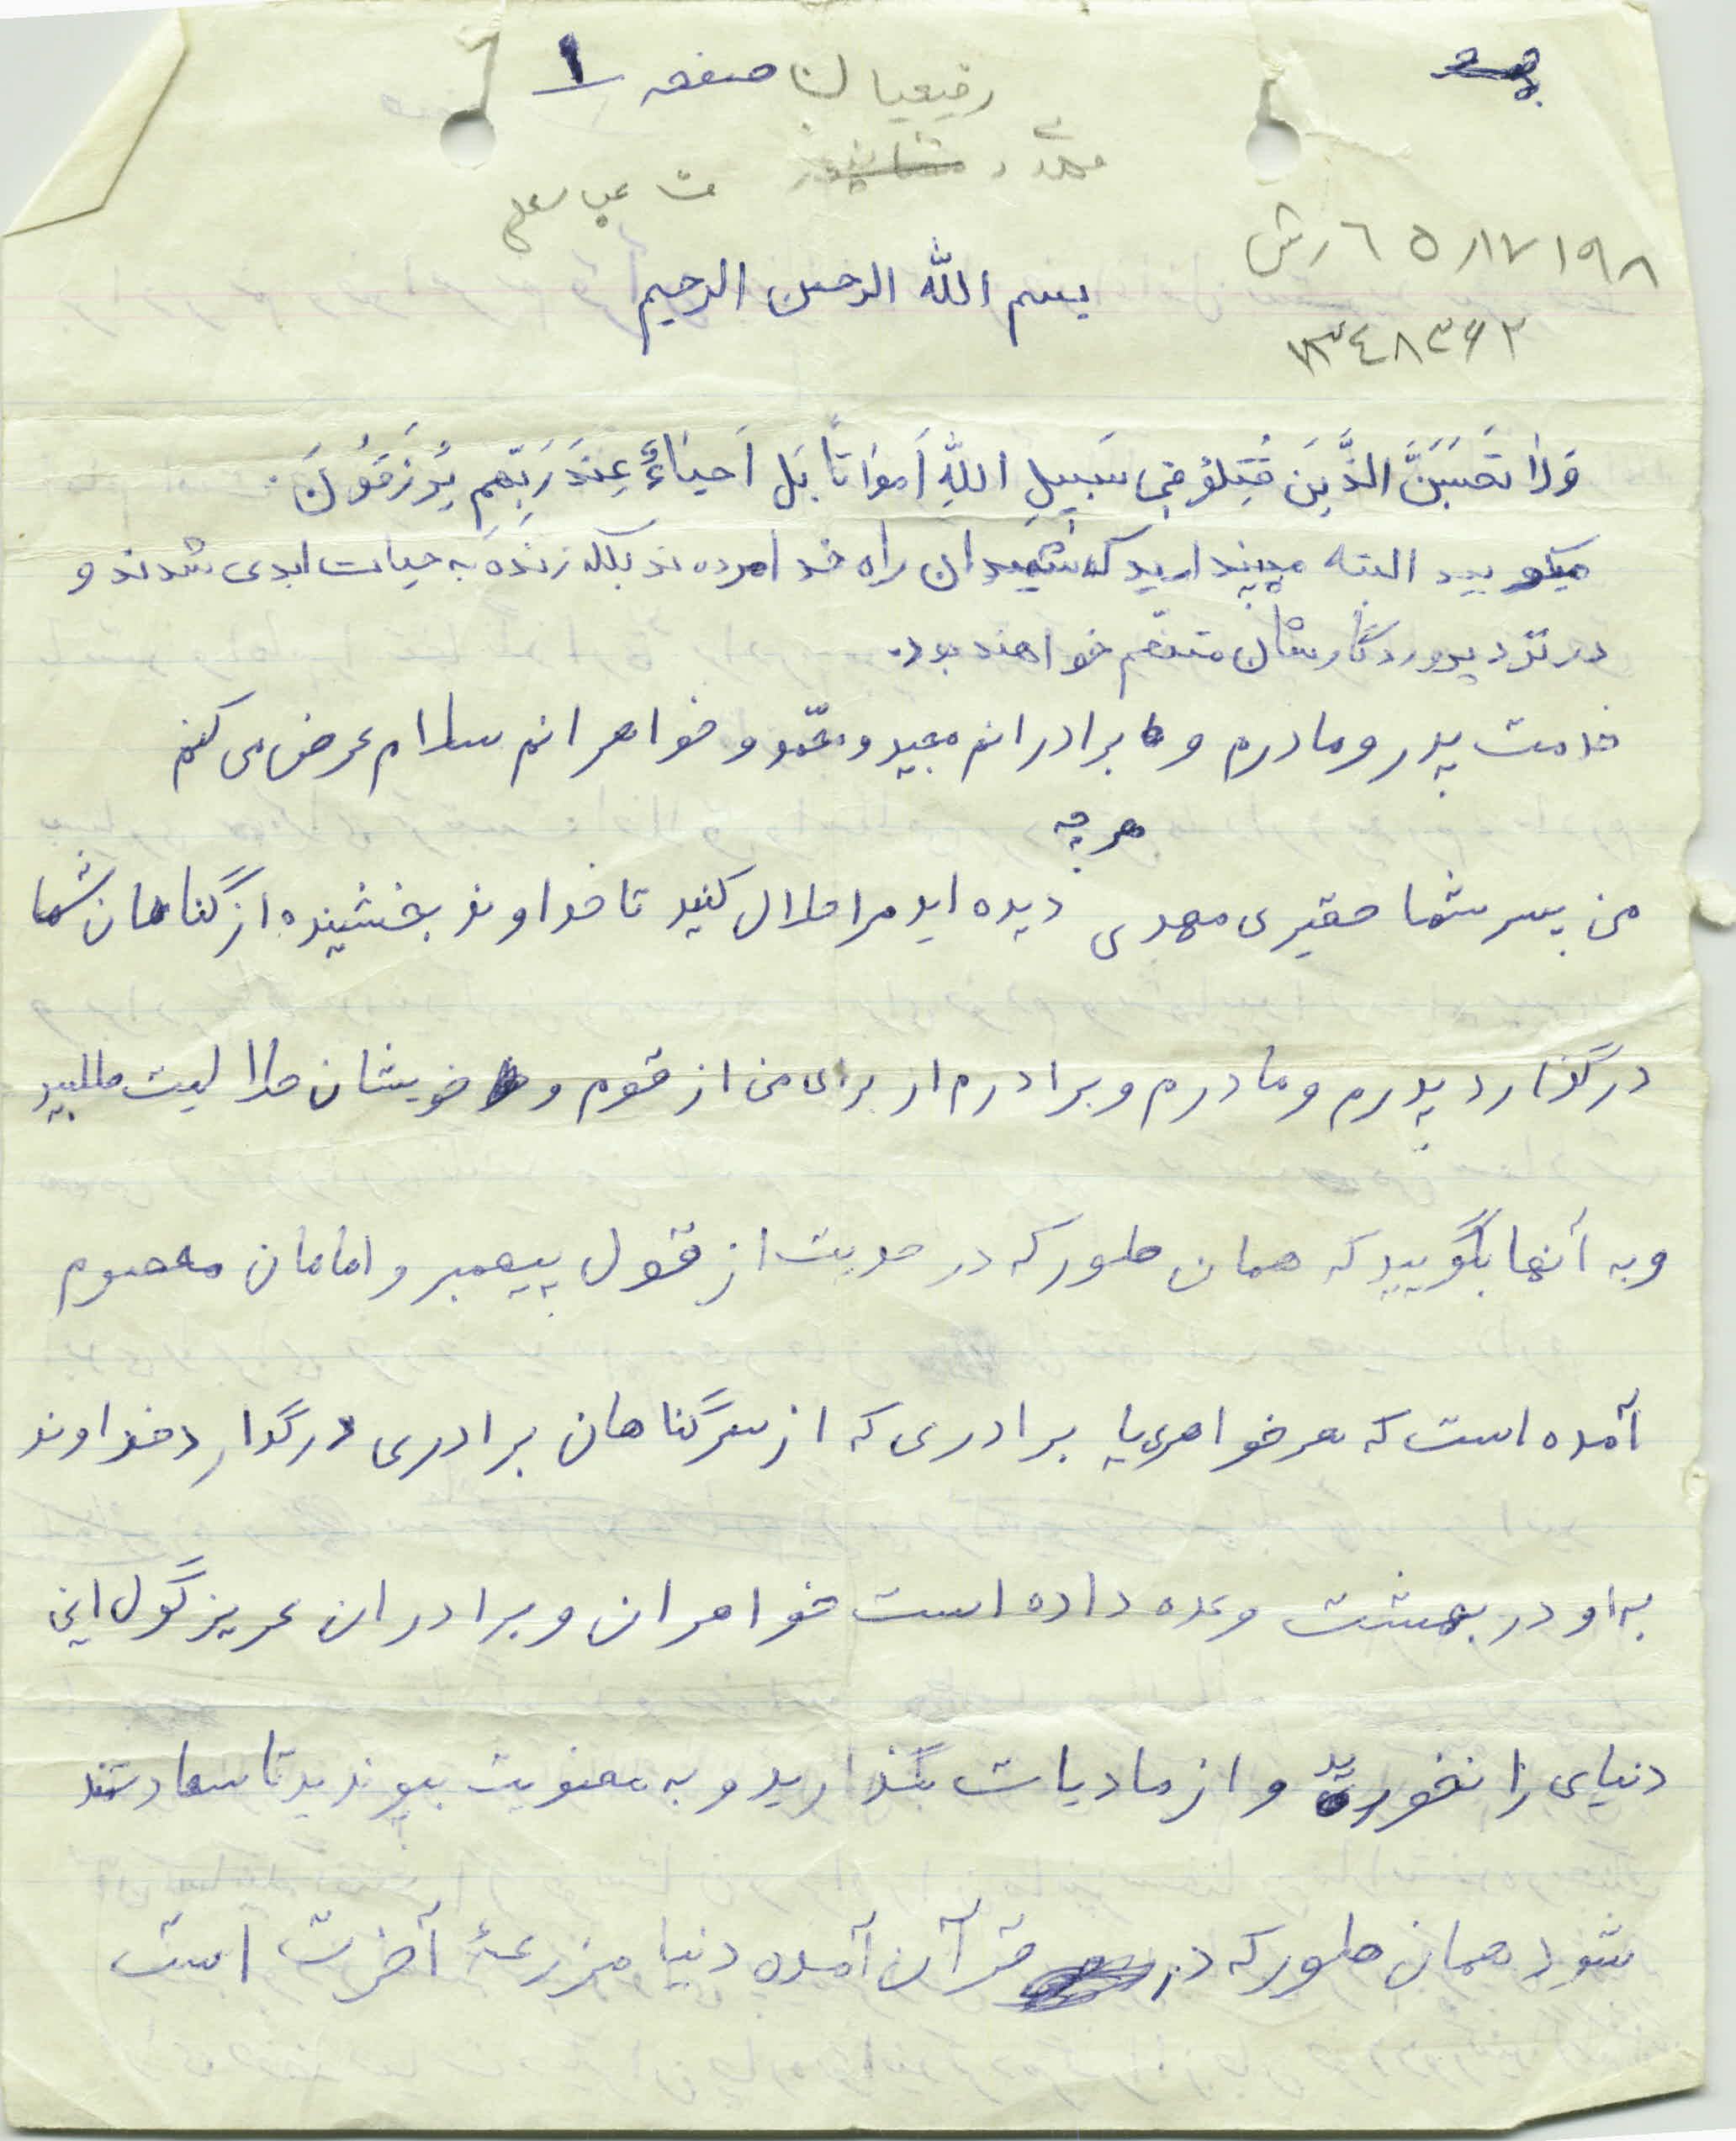 رفیعیان صفحه ۱
بسم الله الرحمن الرحیم
وَلا تَحسَبَنَّ الذَّینَ قُتِلوُ فیِ سَبیِلِ اللهِ اَموَاتاً بَل اَحیَاءٌ عِندَ رَبِّهِم یُرزَقوُنَ.
میگویید البته مپندارید که شهیدان راه خدا مرده‌ند بلکه زنده به حیات ابدی شدند و
در نزد پروردگارشان متنعّم خواهند بود.
خدمت پدر و مادرم و برادرانم مجید و محمّد و خواهرانم سلام عرض می کنم
من پسر شما حقیری مهدی هر چه دیده اید مرا حلال کنید تا خداوند بخشینده از گناهان شما
درگذارد پدرم و مادرم و برادرم از برای من از قوم و خویشان حلالیت طلبید
و به آنها بگویید که همان طور که در حدیث از قول پیغمبر و امامان معصوم
آمده است که هر خواهری یا برادری که از سر گناهان برادری درگذارد خداوند
به او در بهشت وعده داده است خواهران و برادران عزیز گول این
دنیای را نخورید و از مادیات بگذارید و به معنویت بپوندید تا سعادتمند
شود همان طور که در قرآن آمده دنیا مزرعهٔ آخرت است